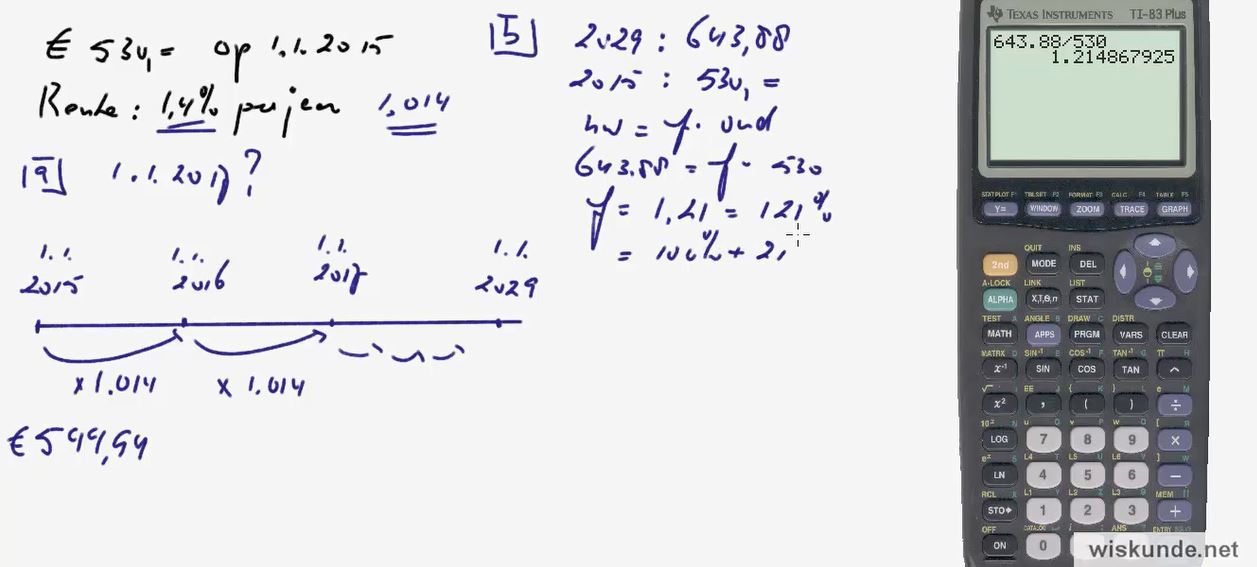 € 530,= op 1.1.2015
Rente: 1,4% per jaar 1,014
9 1.1.2017?
1.1. 2015
1.1. 2016
1.1. 2017
1.1. 2029
×1.014 × 1.014
€ 544,94
15 2029: 643,88
2015: 530,=
nw = g · oud
643.88 = g · 530
g = 1,21 = 121%
= 100% + 21
TEXAS INSTRUMENTS TI-83 Plus
643.88/530
1.214867925
STAT PLOT F1 TBLSET F2 FORMAT F3 CALC F4 TABLE F5
Y= WINDOW ZOOM TRACE GRAPH
QUIT INS
2nd MODE DEL
A-LOCK LINK LIST
ALPHA X,T,θ,n STAT
TEST A ANGLE B DRAW C DISTR
MATH APPS PRGM VARS CLEAR
MATRX D SIN⁻¹ E COS⁻¹ F TAN⁻¹ G π H
x⁻¹ SIN COS TAN ^
√ I EE J { K } L e M
x² , ( ) ÷
10ˣ N u O v P w Q [ R
LOG 7 8 9 ×
eˣ S L4 T L5 U L6 V ] W
LN 4 5 6 −
RCL X L1 Y L2 Z L3 θ MEM "
STO▶ 1 2 3 +
OFF CATALOG ANS ? ENTRY SOLVE
ON 0
wiskunde.net